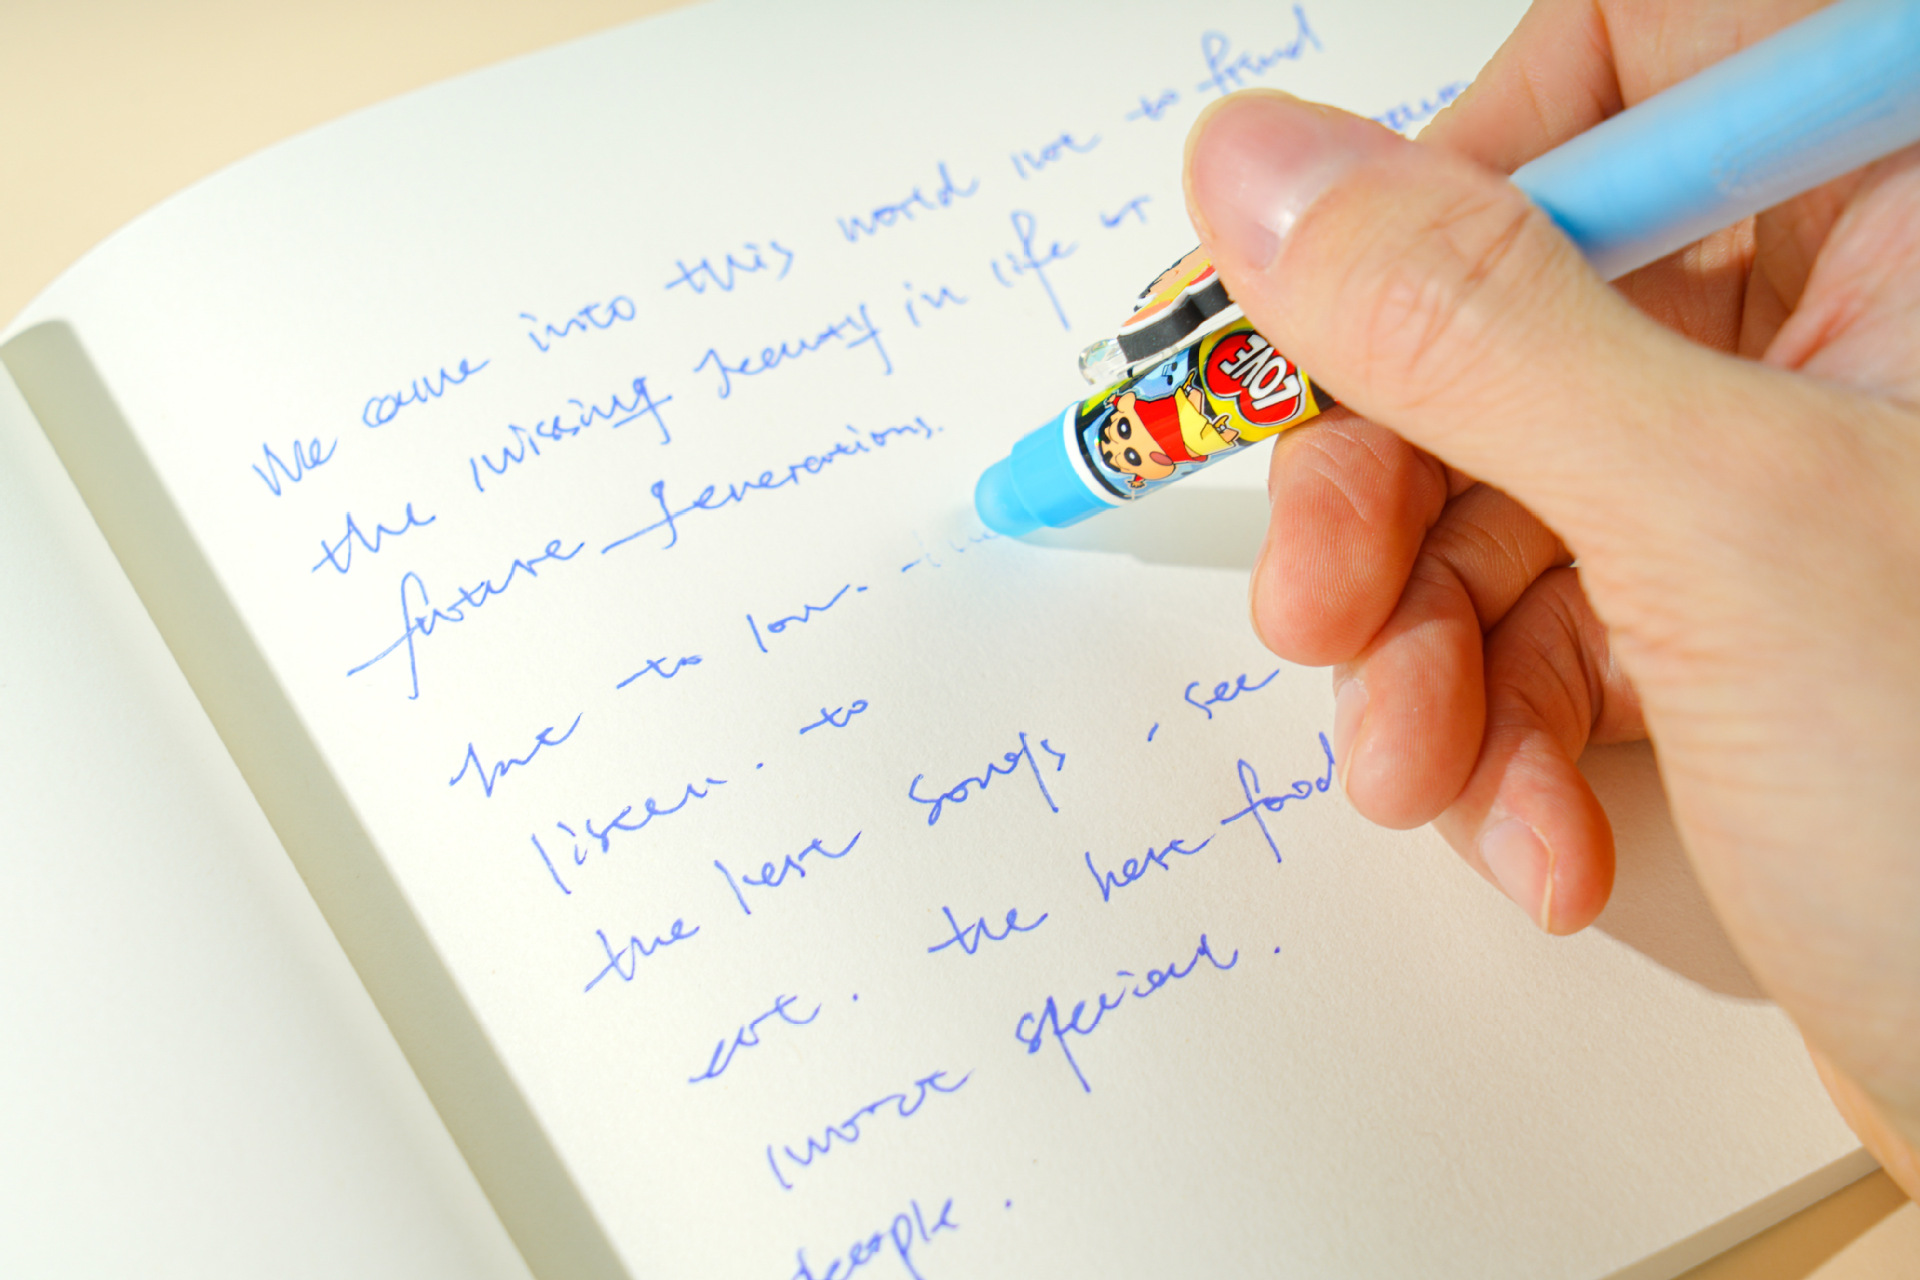 We came into this world not to find
the missing beauty in life or
future generations.
but to love. the
listen. to
the best songs, see
eat. the best food
most special.
people.
LOVE